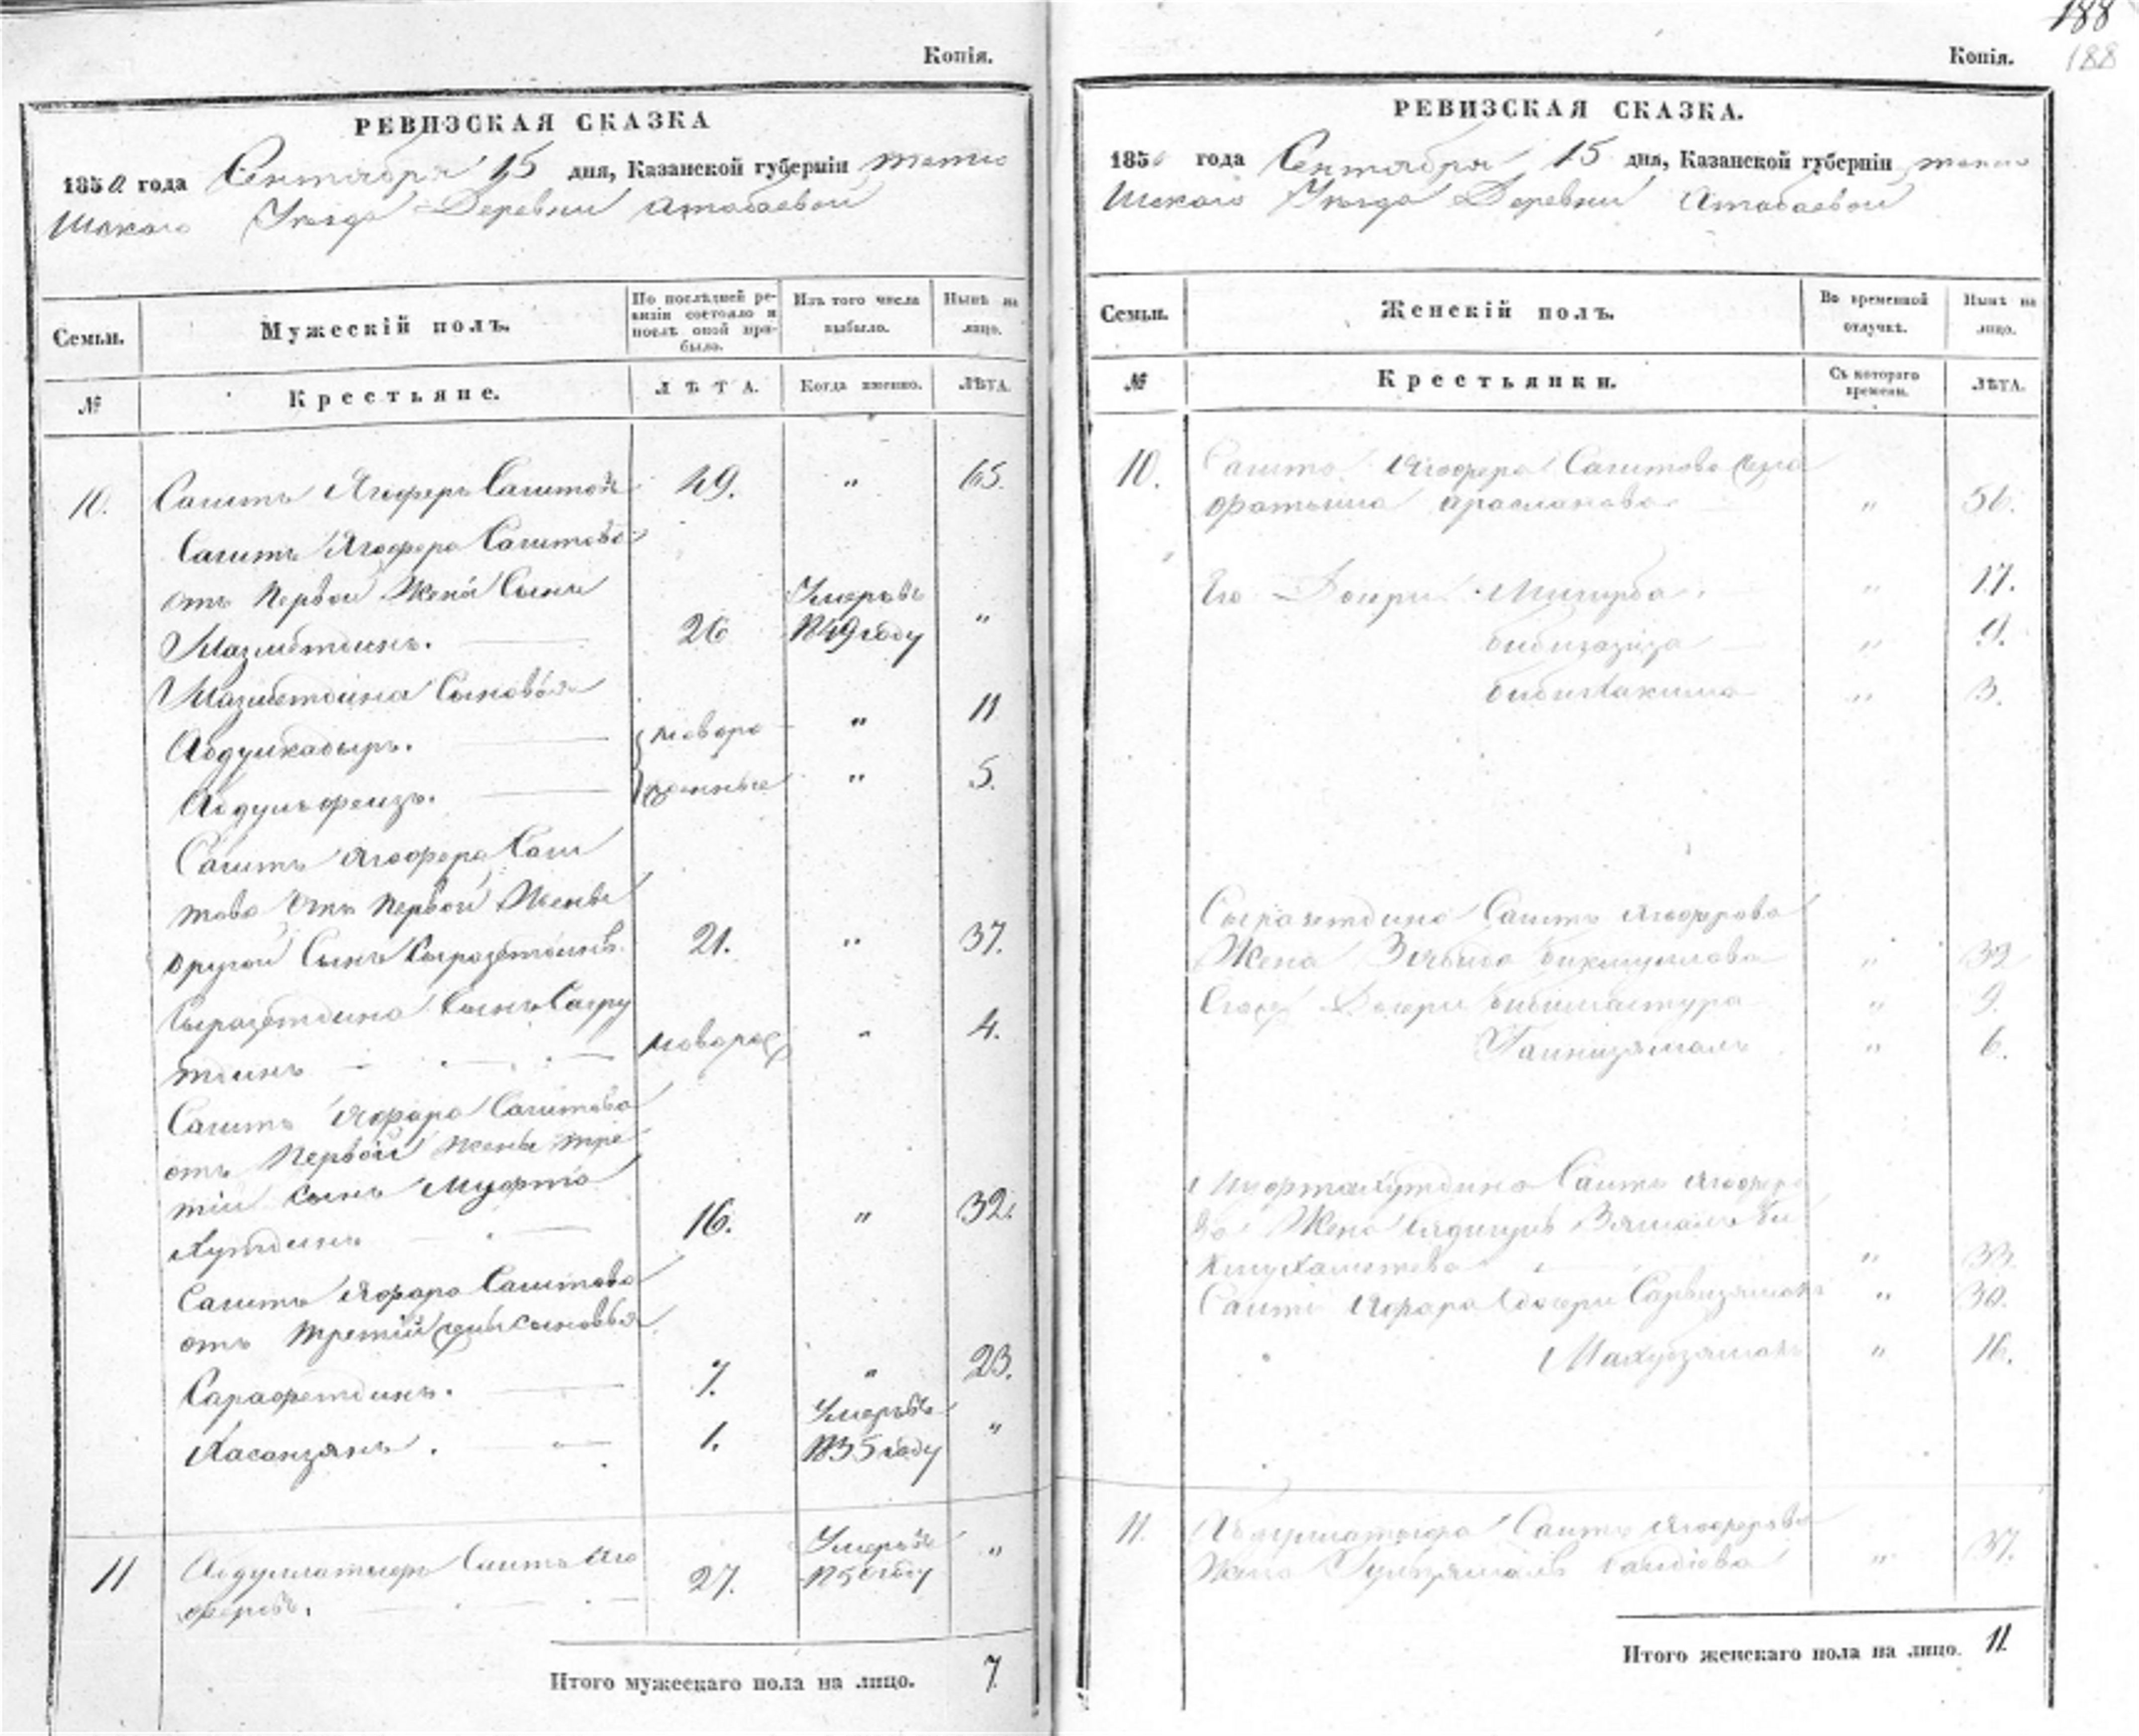 188
188
Копія.
РЕВИЗСКАЯ СКАЗКА
1850 года Сентября 15 дня, Казанской губерніи тетю
шскаго Уезда Деревни Атабаевой
Семьи.
Мужескій полъ.
По послѣдней ре-
визіи состояло и
послѣ оной при-
было.
Изъ того числа
выбыло.
Нынѣ на
лицо.
№
Крестьяне.
ЛѢТА.
Когда именно.
ЛѢТА.
10. Сагитъ Ягоферъ Сагитовъ 49. " 65.
Сагитъ Ягофера Сагитова
отъ Первой Жены Сынъ Умеръ въ
Мазметдинъ. 26 1849 году "
Мазметдина Сыновья
Абдулкадыръ. новоро " 11
Абдулъфеизъ. жденные " 5.
Сагитъ Ягофера Саги
това Отъ Первой Жены
другой Сынъ Сыразетдинъ 21. " 37.
Сыразетдина Сынъ
тдинъ новорож " 4.
Сагитъ Яфара Сагитова
отъ Первой жены тре
тій сынъ Муфта
хутдинъ 16. " 32.
Сагитъ Яфара Сагитова
отъ третій жены сыновья
Сарафетдинъ. 7. " 23.
Умеръ въ
Хасанзянъ. 1. 1835 году "
11 Абдуллатыфъ Сагитъ Яго Умеръ въ "
феровъ. 27. 1850 году
Итого мужескаго пола на лицо. 7
Копія.
РЕВИЗСКАЯ СКАЗКА.
1850 года Сентября 15 дня, Казанской губерніи тетю
шскаго Уезда Деревни Атабаевой
Семьи.
Женскій полъ.
Во временной
отлучкѣ.
Нынѣ на
лицо.
№
Крестьянки.
Съ котораго
времени.
ЛѢТА.
10. Сагитъ Ягофера Сагитова жена
Фатыма Арасланова " 56.
Его Дочери " 17.
бибигазиза " 9.
бибихакима " 3.
Сыразетдина Сагитъ Ягоферова
Жена " 39
Дочери " 9.
" 6.
Муфтахутдина Сагитъ Ягоферо
ва Жена Би
кмухаметева " 33
Сагитъ Яфара дочери " 30.
" 16.
11. Абдуллатыфа Сагитъ Ягоферова
Жена " 37.
Итого женскаго пола на лицо. 11